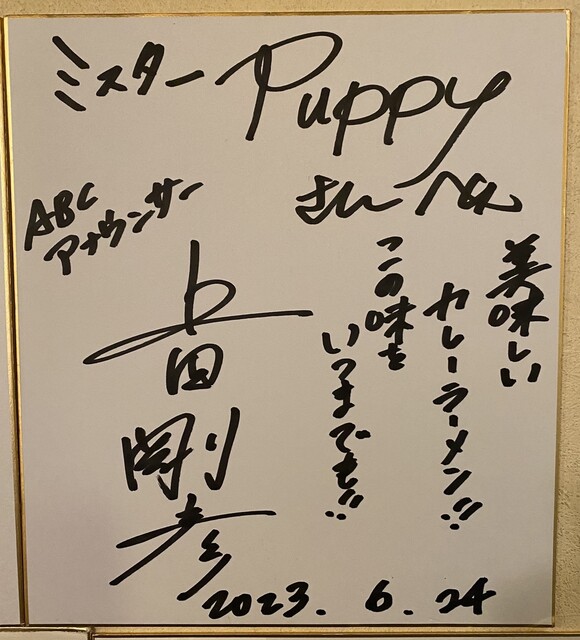 ミスターPuppy
さん
美味しい
カレーラーメン!!
この味を
いつまでも!!
ABC
アナウンサー
上田剛彦
2023. 6. 24